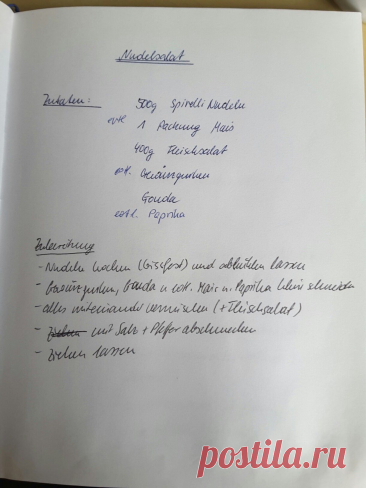 Nudelsalat
Zutaten: 500g Spirelli Nudeln
evtl. 1 Packung Mais
400g Fleischsalat
evtl. Gewürzgurken
Gouda
evtl. Paprika
Zubereitung
- Nudeln kochen (bissfest) und abkühlen lassen
- Gewürzgurken, Gouda u. evtl. Mais u. Paprika klein schneiden
- alles miteinander vermischen (+ Fleischsalat)
- mit Salz + Pfeffer abschmecken
- Ziehen lassen
postila.ru